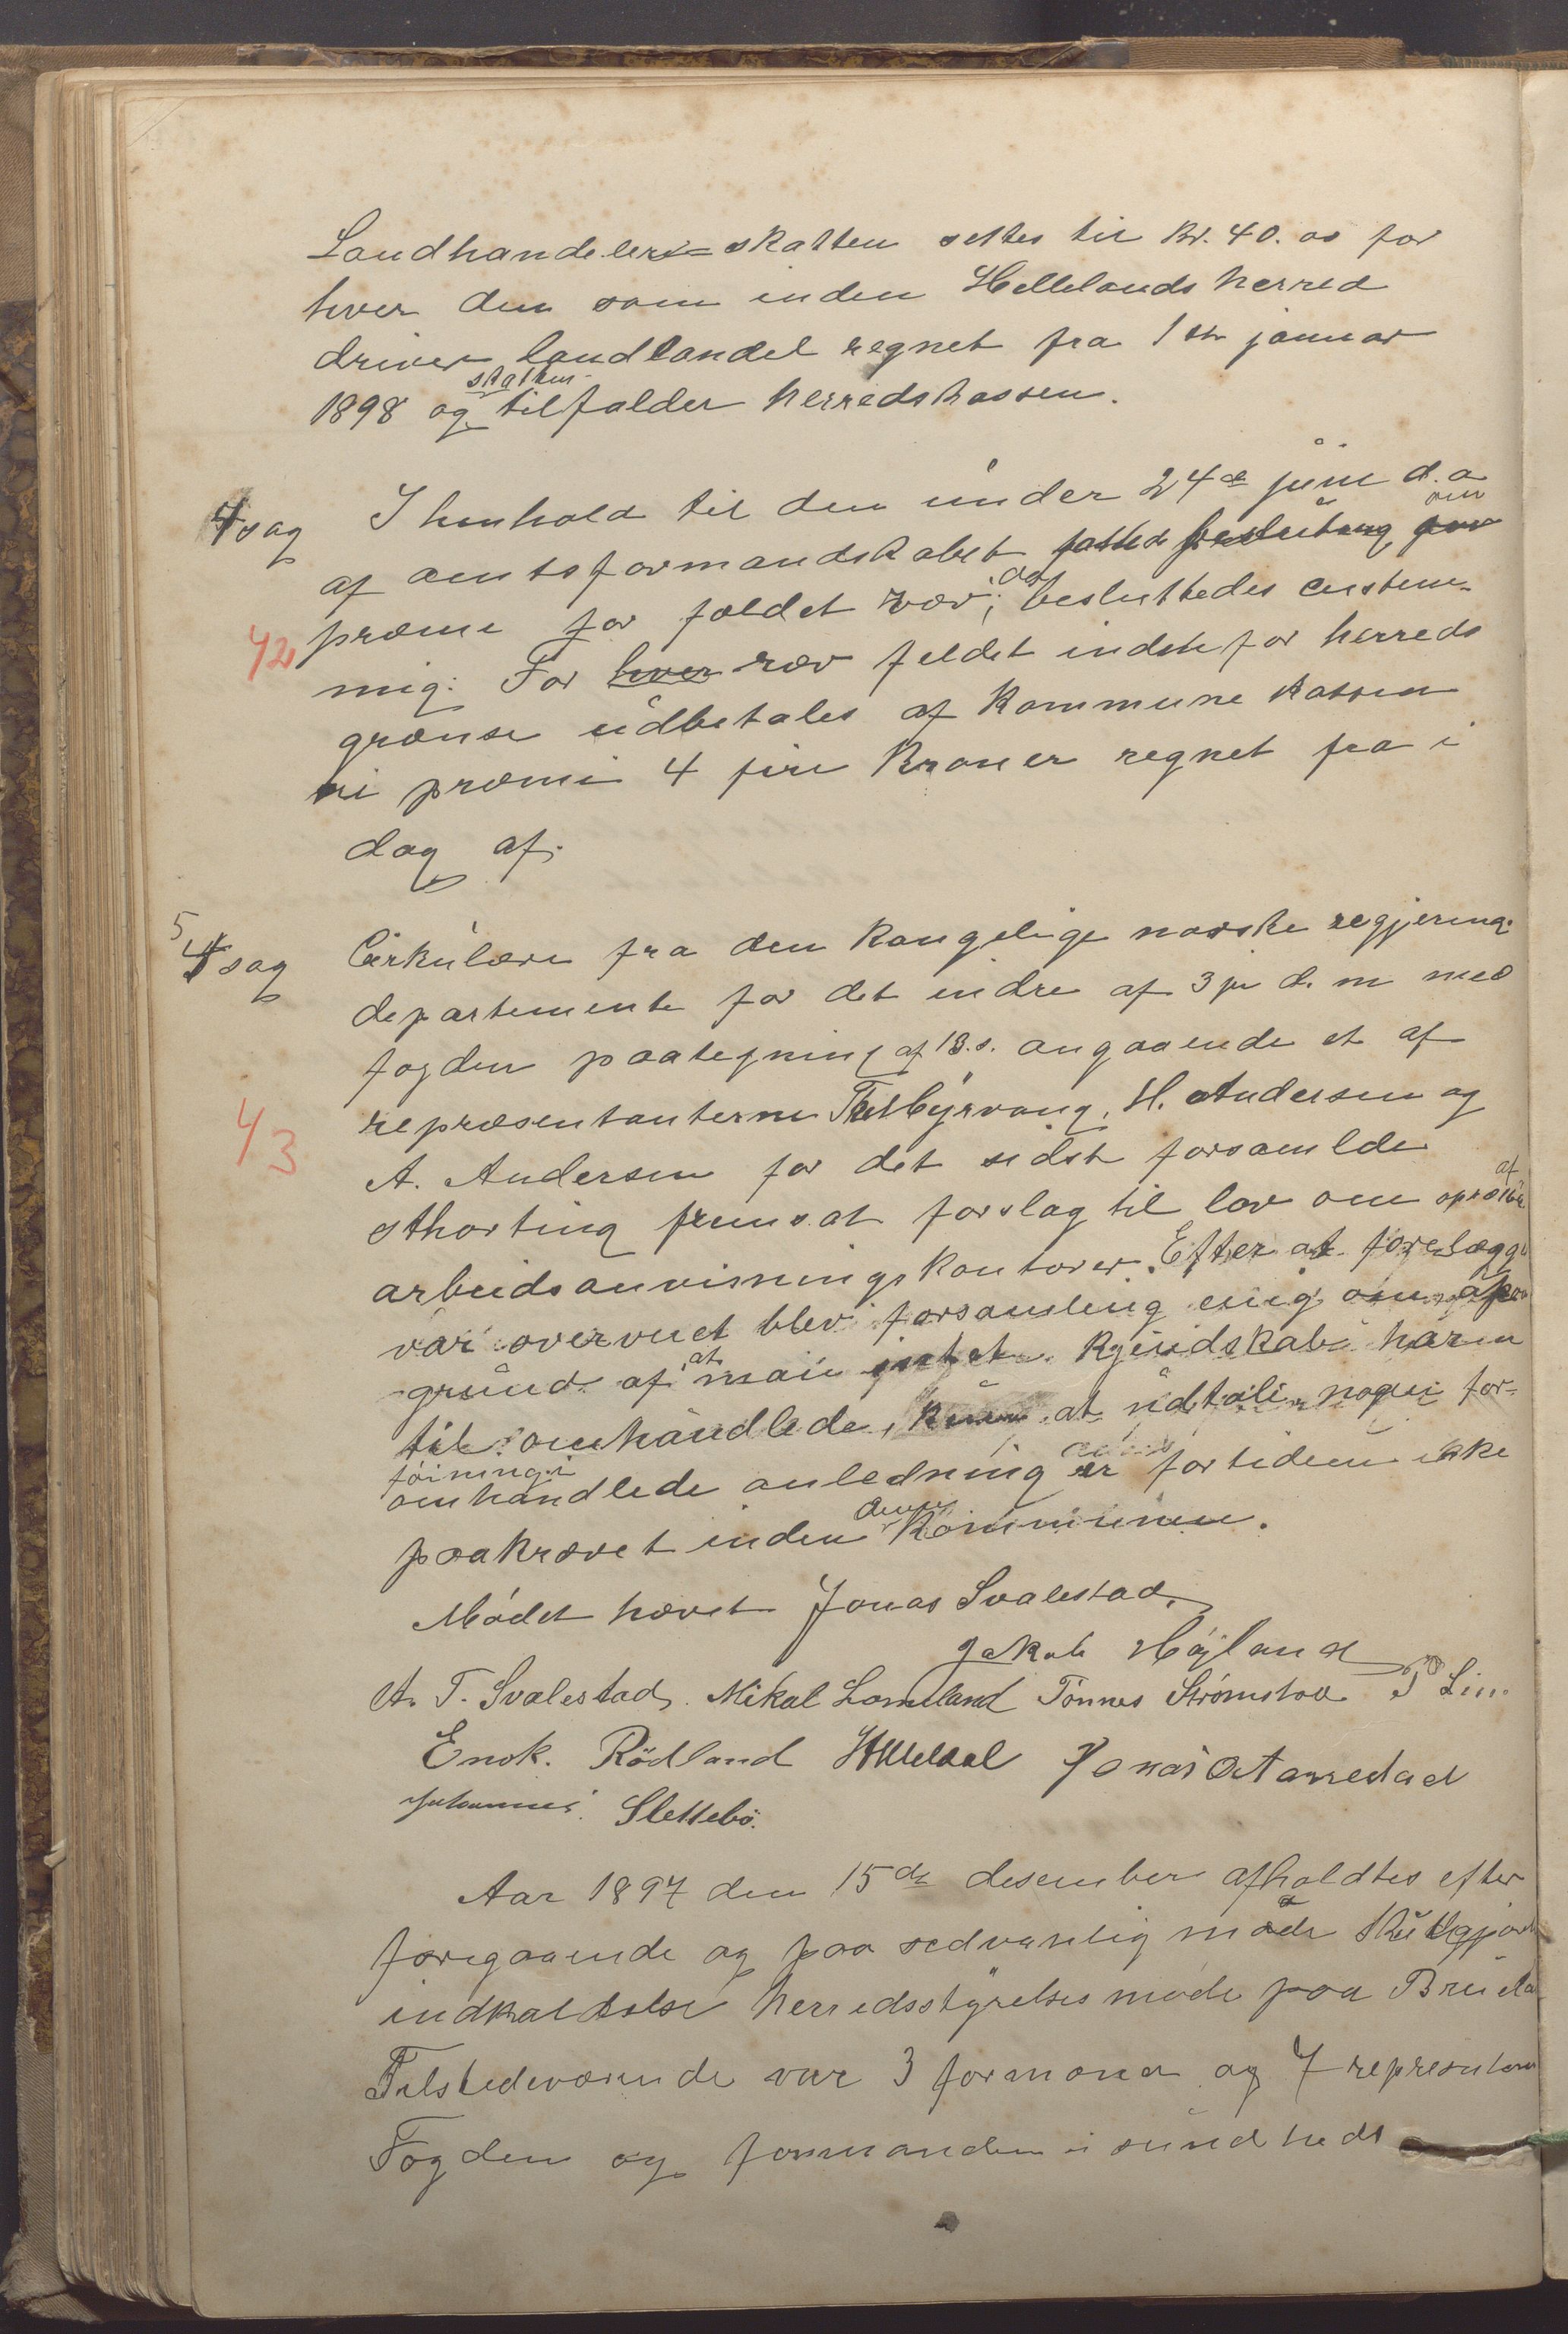 Landhandeleri=skatten settes til Kr. 40.00 for
hver den som inden Hellelands herred
driver landhandel regnet fra 1ste januar
skatten
1898 og tilfalder herredskassen.
4 sag I henhold til den under 24de juni d.a
om
af amtsformandskabet fatted beslutning
præmie for fældet ræv; besluttedes enstem-
42
mig: For hver ræv feldet indenfor herreds
grænse udbetales af Kommune kassen
i præmi 4 fire Kroner regnet fra i
dag af.
5
4 sag Cirkulære fra den kongelige norske regjerings
departemente for det indre af 3je d.m med
fogden paategning af 13.s. angaaende et af
repræsentanterne Thilbyrvang, H. Andersen og
43
A. Andersen for det sidst forsamlde
af
sthorting fremsat forslag til lov om
arbeidsanvisningskontorer. Efter at forelægge
var overveiet blev forsamling enig om at paa
at
grund af man intet kjendskab har
til omhandlede, at udtale nogen for-
føining i
omhandlede anledning er fortiden ikke
denne
paakrævet inden Kommunen.
Mødet hævet Jonas Svalestad,
Jakob Högland
A. T. Svalestad. Mikal Lomeland Tönnes Strömstad P Li
Enok. Rödland Jonas O Aarrestad
Johannes Slettebö.
Aar 1897 den 15de desember afholdtes efter
foregaaende og paa sedvanlig måde
indkaldelse herredsstyrelses møde paa
Tilstedeværende var 3 formænd og 7 represen
Fogden og formanden i sundheds